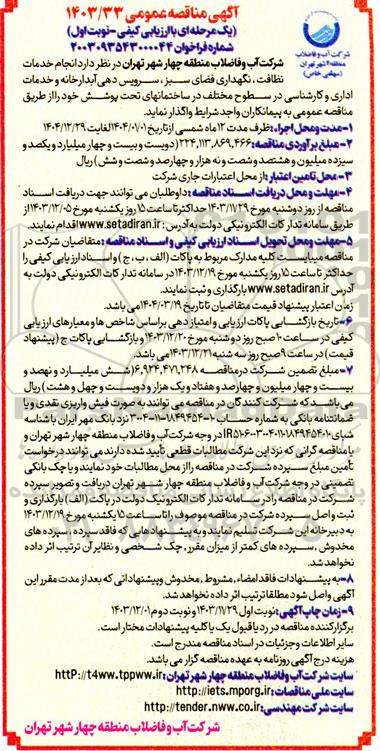 آگهی مناقصه عمومی ۱۴۰۳/۳۳
(یک مرحله ای با ارزیابی کیفی - نوبت اول)
شماره فراخوان ۲۰۰۳۰۹۵۴۳۰۰۰۰۴۴
شرکت آب و فاضلاب
منطقه ۴ شهر تهران
(سهامی خاص)
شرکت آب و فاضلاب منطقه چهار شهر تهران در نظر دارد انجام خدمات
نظافت، نگهداری فضای سبز، سرویس دهی آبدارخانه و خدمات
اداری و کارشناسی در سطوح مختلف در ساختمانهای تحت پوشش خود را از طریق
مناقصه عمومی به پیمانکاران واجد شرایط واگذار نماید.
۱- مدت و محل اجراء: ظرف مدت ۱۲ ماه شمسی از تاریخ ۱۴۰۴/۰۱/۰۱ لغایت ۱۴۰۴/۱۲/۲۹
۲- مبلغ برآوردی مناقصه: ۲۲۴,۱۱۳,۸۶۹,۴۶۶ (دویست و بیست و چهار میلیارد و یکصد و
سیزده میلیون و هشتصد و شصت و نه هزار و چهارصد و شصت و شش) ریال
۳- محل تامین اعتبار: از محل اعتبارات جاری شرکت
۴- مهلت و محل دریافت اسناد مناقصه: داوطلبان می توانند جهت دریافت اسناد
مناقصه از روز دوشنبه مورخ ۱۴۰۳/۱۱/۲۹ حداکثر تا ساعت ۱۵ روز یکشنبه مورخ ۱۴۰۳/۱۲/۰۵ از
طریق سامانه تدارکات الکترونیکی دولت به آدرس: www.setadiran.ir اقدام نمایند.
۵- مهلت و محل تحویل اسناد ارزیابی کیفی و اسناد مناقصه: متقاضیان شرکت در
مناقصه میبایست کلیه مدارک مربوط به پاکات (الف، ب، ج) و اسناد ارزیابی کیفی را
حداکثر تا ساعت ۱۵ روز یکشنبه مورخ ۱۴۰۳/۱۲/۱۹ در سامانه تدارکات الکترونیکی دولت به
آدرس www.setadiran.ir بارگذاری و ثبت نمایند.
زمان اعتبار پیشنهاد قیمت متقاضیان تا تاریخ ۱۴۰۴/۰۳/۱۹ می باشد.
۶- تاریخ بازگشایی پاکات ارزیابی و امتیاز دهی براساس شاخص ها و معیارهای ارزیابی
کیفی در ساعت ۱۰ صبح روز دوشنبه مورخ ۱۴۰۳/۱۲/۲۰ و بازگشایی پاکات ج (پیشنهاد
قیمت) در ساعت ۹ صبح روز سه شنبه ۱۴۰۳/۱۲/۲۱ می باشد.
۷- مبلغ تضمین شرکت در مناقصه ۶,۹۲۴,۴۷۱,۲۴۸ (شش میلیارد و نهصد و
بیست و چهار میلیون و چهارصد و هفتاد و یک هزار و دویست و چهل و هشت) ریال
می باشد که شرکت کنندگان در مناقصه می توانند به صورت فیش واریزی نقدی و یا
ضمانتنامه بانکی به شماره حساب ۱-۱۸۴۹۴۵۴-۱۱-۳۰۰۴ نزد بانک مهر ایران با شناسه
شبای
در وجه شرکت آب و فاضلاب منطقه چهار شهر تهران و
یا مناقصه گرانی که نزد این شرکت مطالبات قطعی تأیید شده دارند می توانند درخواست
تأمین مبلغ سپرده شرکت در مناقصه را از محل مطالبات خود نمایند و یا چک بانکی
تضمینی در وجه شرکت آب و فاضلاب منطقه چهار شهر تهران دریافت و تصویر سپرده
شرکت در مناقصه را در سامانه تدارکات الکترونیک دولت در پاکت (الف) بارگذاری و
ثبت و اصل سپرده شرکت در مناقصه موصوف را تا ساعت ۱۵ یکشنبه مورخ ۱۴۰۳/۱۲/۱۹
به دبیرخانه این شرکت تسلیم نمایند و به پیشنهادهایی که فاقد سپرده، سپرده های
مخدوش، سپرده های کمتر از میزان مقرر، چک شخصی و نظایر آن ترتیب اثر داده
نخواهد شد.
۸- به پیشنهادات فاقد امضاء، مشروط، مخدوش و پیشنهاداتی که بعد از مدت مقرر این
آگهی واصل شود مطلقا ترتیب اثر داده نخواهد شد.
۹- زمان چاپ آگهی: نوبت اول ۱۴۰۳/۱۱/۲۹ و نوبت دوم ۱۴۰۳/۱۲/۰۱
برگزار کننده مناقصه در رد یا قبول یک یا کلیه پیشنهادات مختار است.
سایر اطلاعات و جزئیات در اسناد مناقصه مندرج است.
هزینه درج آگهی روزنامه به عهده مناقصه گزار می باشد.
سایت شرکت آب و فاضلاب منطقه چهار شهر تهران: httP://t4ww.tppww.ir
سایت ملی مناقصات: http://iets.mporg.ir
سایت شرکت مهندسی: http://tender.nww.co.ir
شرکت آب و فاضلاب منطقه چهار شهر تهران